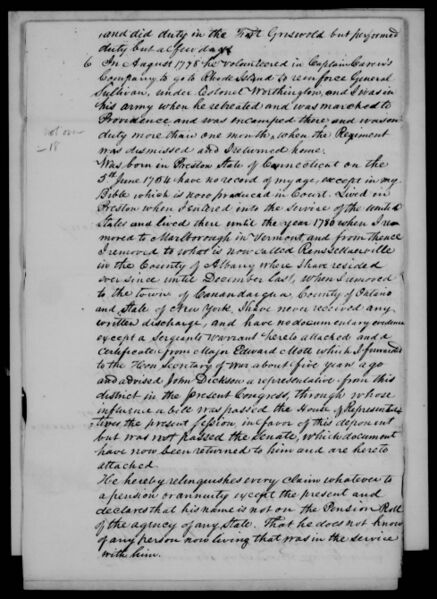 and did duty in the Fort Griswold but performed
duty but a few days
6 In August 1778 he volunteered in Captain Carver's
Company to go to Rhode Island to reinforce General
Sullivan, under Colonel Worthington, and I was in
his army when he retreated and was marched to
Providence and was encamped there and was on
duty more than one month, when the Regiment
was dismissed and I returned home.
Was born in Preston State of Connecticut on the
5th June 1754 have no record of my age, except in my
Bible which is now produced in Court. Lived in
Preston when I entered into the service of the United
States and lived there until the year 1786 when I re-
moved to Marlborough in Vermont, and from thence
I removed to what is now called Rensselaerville
in the County of Albany where I have resided
ever since until December last, when I removed
to the town of Canandaigua, County of Ontario
and State of New York. I have never received any
written discharge, and have no documentary evidence
except a Sergeant Warrant hereto attached and a
Certificate from Major Edward Mott which I forwarded
to the Hon Secretary of War about five years ago
and advised John Dickson a representative from this
district in the present Congress, through whose
influence a bill was passed the House of Representa-
tives, the present session, in favor of this deponent
but was not passed the Senate, which document
have now been returned to him and are hereto
attached.
He hereby relinquishes every claim whatever to
a pension or annuity except the present and
declares that his name is not on the Pension Roll
of the agency of any State. That he does not know
of any person now living that was in the service
with him.